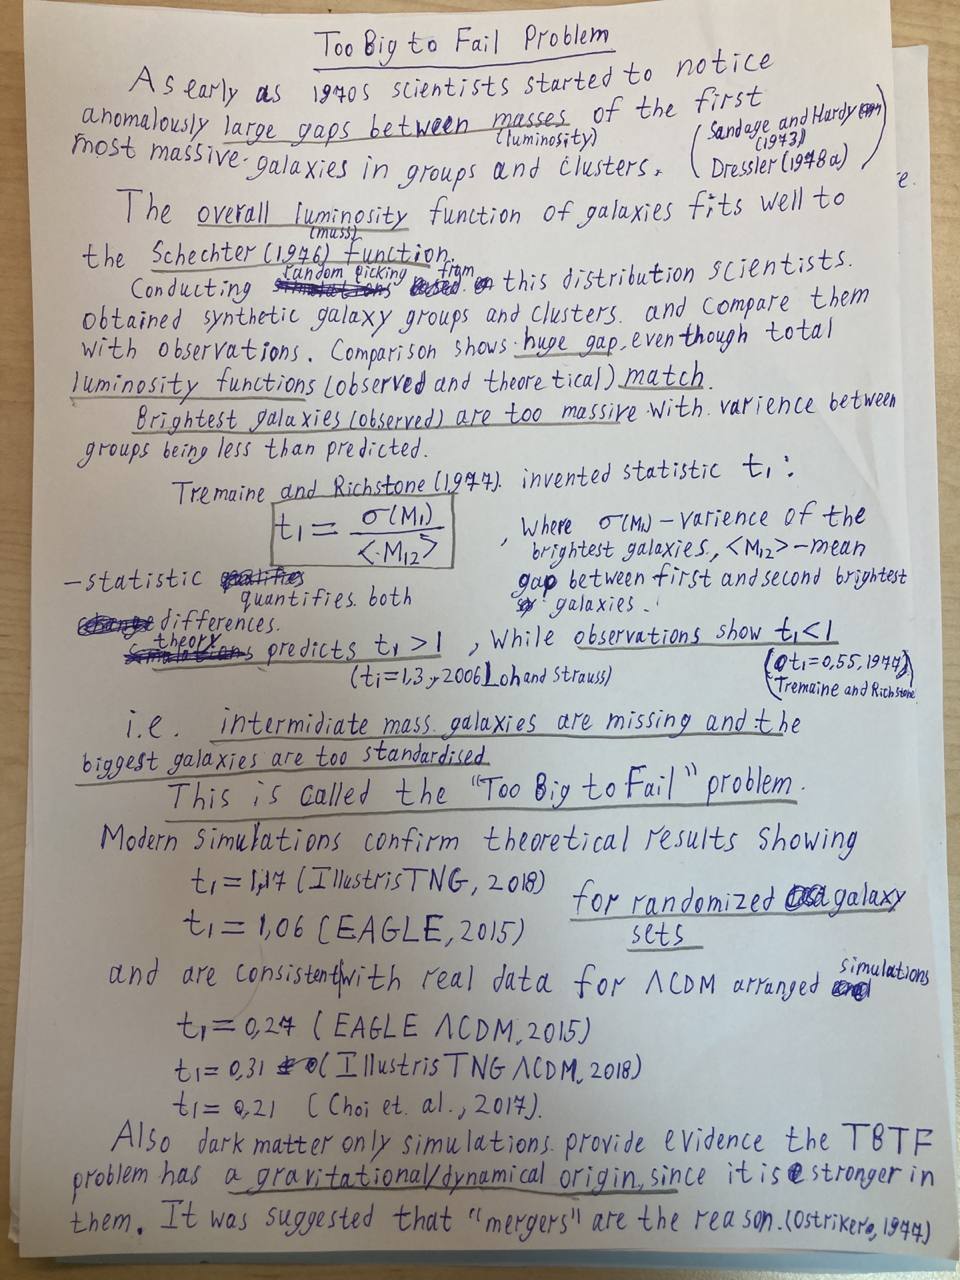 Too Big to Fail Problem
As early as 1970s scientists started to notice
anomalously large gaps between masses of the first
(luminosity)
most massive galaxies in groups and clusters. (Sandage and Hardy
(1973)
Dressler (1978a))
e.
The overall luminosity function of galaxies fits well to
(mass)
the Schechter (1976) function.
Conducting random picking from this distribution scientists.
obtained synthetic galaxy groups and clusters. and compare them
with observations. Comparison shows huge gap, even though total
luminosity functions (observed and theoretical) match.
Brightest galaxies (observed) are too massive with varience between
groups being less than predicted.
Tremaine and Richstone (1977). invented statistic t₁:
t₁ = σ(M₁) / <M₁₂>
, where σ(M₁) – varience of the
brightest galaxies, <M₁₂> – mean
gap between first and second brightest
galaxies.
– statistic
quantifies both
differences.
theory predicts t₁ > 1, while observations show t₁ < 1
(t₁ = 1,3, 2006 Loh and Strauss)
(t₁ = 0,55, 1977)
(Tremaine and Richstone
i.e. intermidiate mass galaxies are missing and the
biggest galaxies are too standardised
This is called the "Too Big to Fail" problem.
Modern simulations confirm theoretical results showing
t₁ = 1,17 (IllustrisTNG, 2018)
t₁ = 1,06 (EAGLE, 2015)
for randomized galaxy
sets
and are consistent with real data for ΛCDM arranged simulations
t₁ = 0,27 (EAGLE ΛCDM, 2015)
t₁ = 0,31 (IllustrisTNG ΛCDM, 2018)
t₁ = 0,21 (Choi et. al., 2017).
Also dark matter only simulations provide evidence the TBTF
problem has a gravitational/dynamical origin, since it is stronger in
them. It was suggested that "mergers" are the reason. (Ostrikere, 1977)